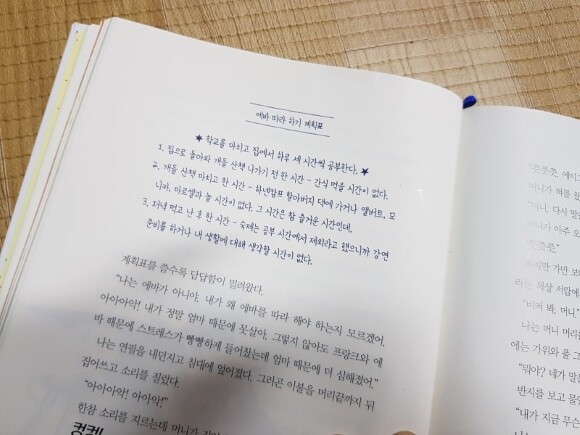 에바 따라 하기 계획표
★ 학교를 마치고 집에서 하루 세 시간씩 공부한다. ★
1. 집으로 돌아와 개들 산책 나가기 전 한 시간 - 간식 먹을 시간이 없다.
2. 개들 산책 마치고 한 시간 - 하넨캄프 할아버지 댁에 가거나 앨버트, 모
니카, 마르셀과 놀 시간이 없다. 그 시간은 참 즐거운 시간인데.
3. 저녁 먹고 난 후 한 시간 - 숙제는 공부 시간에서 제외라고 했으니까 강연
준비를 하거나 내 생활에 대해 생각할 시간이 없다.
계획표를 쓸수록 답답함이 밀려왔다.
"나는 에바가 아니야. 내가 왜 에바를 따라 해야 하는지 모르겠어.
아아아악! 내가 정말 엄마 때문에 못살아. 그렇지 않아도 프랑크와 에
바 때문에 스트레스가 빵빵하게 들어찼는데 엄마 때문에 더 심해졌어."
나는 연필을 내던지고 침대에 엎어졌다. 그러곤 이불을 머리끝까지 뒤
집어쓰고 소리를 질렀다.
"아아아악! 아아악!"
한참 소리를 지르는데 머니가
컹컹!
"쯧쯧쯧, 에이
머니가 혀를
"머니, 다시 말
머니가 아주 오
"쯧쯧쯧."
하지만 가만 보
라는 책상 서랍에
"비켜 봐, 머니."
나는 머니 머리를
에는 가위와 풀 그
"뭐야? 네가 말
반지를 보고 물었
"내가 지금 무슨